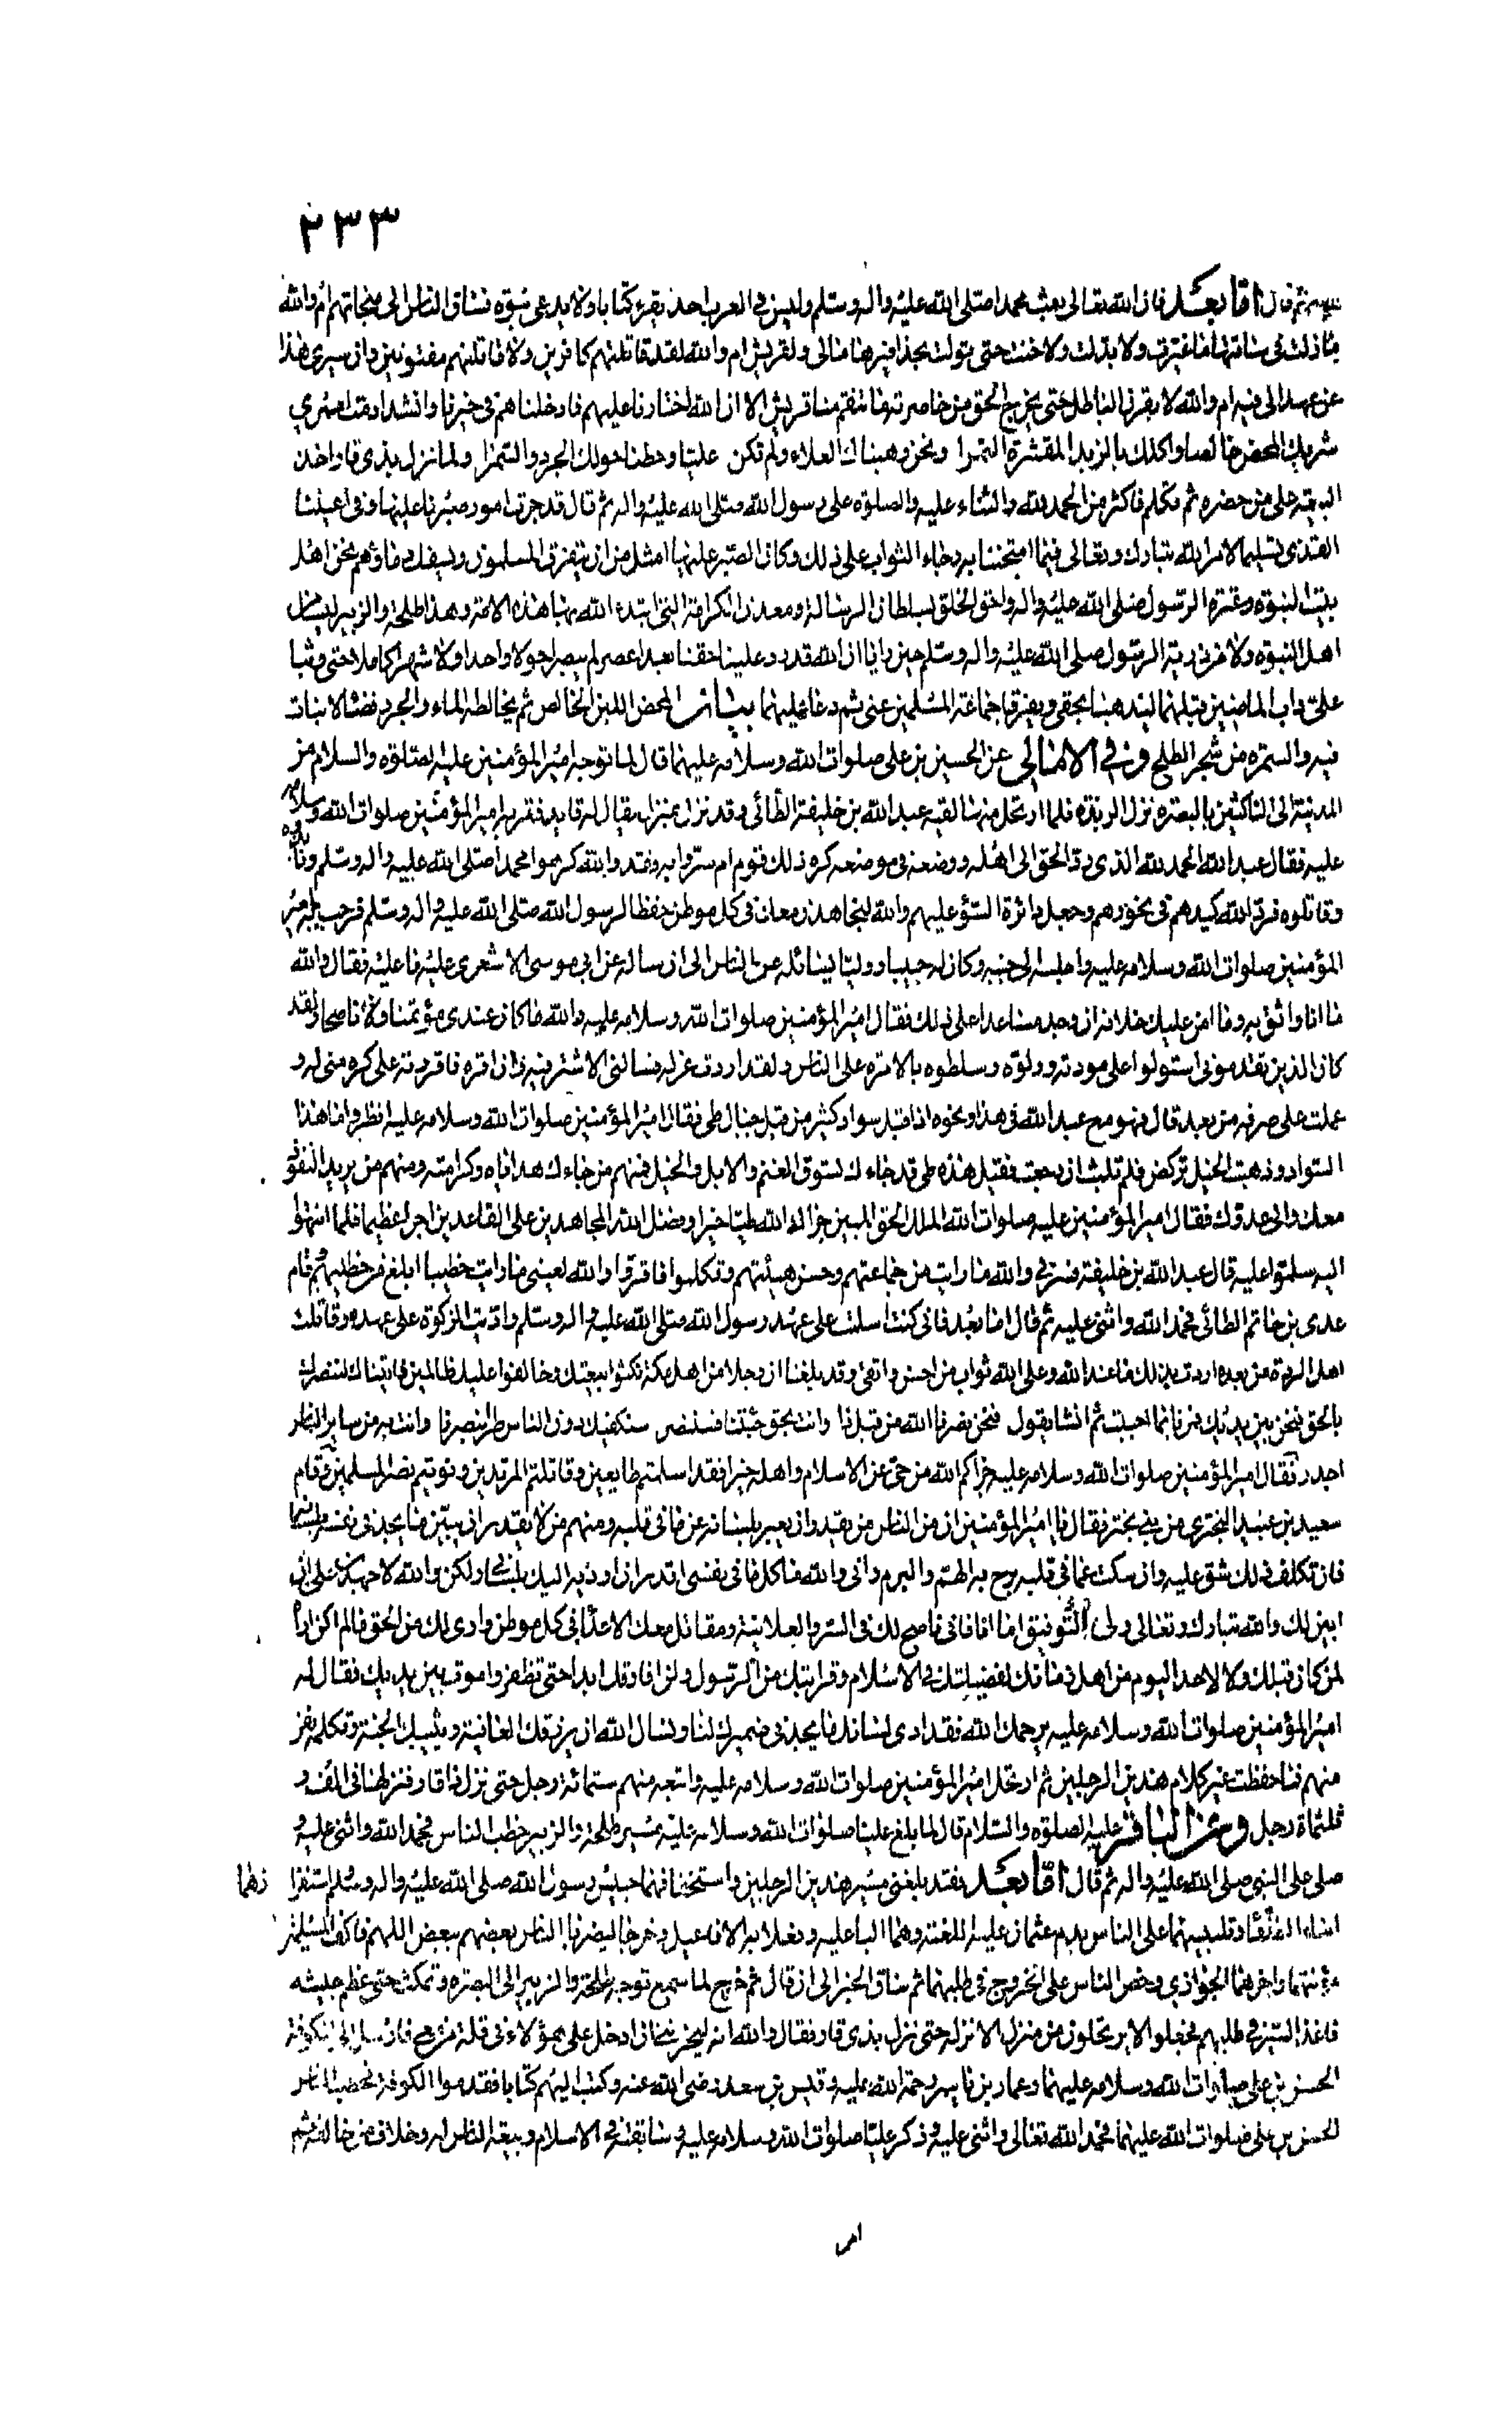 ٢٣٣
ثم قال اما بعد فان الله تعالى بعث محمدا صلى الله عليه واله وسلم وليس في العرب احد يقرء كتابا ولا يدعى نبوة فساق الناس الى منجاتهم ام والله
ما زلت في ساقتها فما غيرت ولا بدلت ولا خنت حتى تولت بحذافيرها مالى ولقريش ام والله لقد قاتلتهم كافرين ولاقاتلنهم مفتونين وان مسيرى هذا
عن عهد الى فيه ام والله لابقرن الباطل حتى يخرج الحق من خاصرته ما تنقم منا قريش الا ان الله اختارنا عليهم فادخلناهم في حيزنا وانشد ادمت لعمري
شربك المحض خالصا واكلك بالزبد المقشرة التمرا ونحن وهبناك العلاء ولم تكن عليا وحطنا حولك الجرد والسمرا ولما نزل بذى قار اخذ
البيعة على من حضره ثم تكلم فاكثر من الحمد لله والثناء عليه والصلوة على رسول الله صلى الله عليه واله ثم قال قد جرت امور صبرنا عليها وفي اعيننا
القذى تسليما لامر الله تبارك وتعالى فيما امتحننا به رجاء الثواب على ذلك وكان الصبر عليها امثل من ان يتفرق المسلمون ويسفك دماؤهم نحن اهل
بيت النبوة وعترة الرسول صلى الله عليه واله واحق الخلق بسلطان الرسالة ومعدن الكرامة التي ابتدء الله بها هذه الامة وهذا طلحة والزبير ليسا من
اهل النبوة ولا من ذرية الرسول صلى الله عليه واله وسلم حين رايا ان الله قد رد علينا حقنا بعد اعصر لم يصبرا حولا واحدا ولا شهرا كاملا حتى وثبا
على داب الماضين قبلهما ليذهبا بحقى ويفرقا جماعة المسلمين عنى ثم دعا عليهما بيان المحض اللبن الخالص ثم يخالطه الماء والجرد فضاء لا نبات
فيه والسمرة من شجر الطلح وفي الامالى عن الحسين بن على صلوات الله وسلامه عليهما قال لما توجه امير المؤمنين عليه الصلوة والسلام من
المدينة الى الناكثين بالبصرة نزل الربذة فلما ارتحل منها لقيه عبد الله بن خليفة الطائى وقد نزل بمنزل يقال له قايد فقربه امير المؤمنين صلوات الله وسلامه
عليه فقال عبد الله الحمد لله الذى رد الحق الى اهله ووضعه في موضعه كره ذلك قوم ام سروا به وفقد والله كرهوا محمدا صلى الله عليه واله وسلم ونابذوه
وقاتلوه فرد الله كيدهم في نحورهم وجعل دائرة السوء عليهم والله لنجاهدن معك في كل موطن حفظا لرسول الله صلى الله عليه واله وسلم فرحب به امير
المؤمنين صلوات الله وسلامه عليه واجلسه الى جنبه وكان له حبيبا ووليا يسائله عن الناس الى ان ساله عن ابى موسى الاشعرى عليه ما عليه فقال والله
ما انا واثق به وما امن عليك خلافه ان وجد مساعدا على ذلك فقال امير المؤمنين صلوات الله وسلامه عليه والله ما كان عندى مؤتمنا ولا ناصحا ولقد
كان الذين تقدمونى استولوا على مودته وولوه وسلطوه بالامرة على الناس ولقد اردت عزله فسالنى الاشتر فيه وان اقره فاقررته على كره منى له و
عملت على صرفه من بعد قال فهو مع عبد الله في هذا ونحوه اذا قبل سواد كثير من قبل جبال طى فقال امير المؤمنين صلوات الله وسلامه عليه انظروا ما هذا
السواد وذهبت الخيل تركض فلم تلبث ان رجعت فقيل هذه طى قد جاءك تسوق الغنم والابل والخيل فمنهم من جاءك بهداياه وكرامته ومنهم من يريد النفوذ
معك والى عدوك فقال امير المؤمنين عليه صلوات الله الملك الحق المبين جزاء الله طيا خيرا وفضل الله المجاهدين على القاعدين اجرا عظيما فلما انتهوا
اليه سلموا عليه قال عبد الله بن خليفة فسرنى والله ما رايت من جماعتهم وحسن هيئتهم وتكلموا فاقروا والله لعينى ما رايت خطيبا ابلغ من خطيبهم ثم قام
عدى بن حاتم الطائى فحمد الله واثنى عليه ثم قال اما بعد فانى كنت اسلمت على عهد رسول الله صلى الله عليه واله وسلم واديت الزكوة على عهده وقاتلت
اهل الردة من بعده اردت بذلك ما عند الله وعلى الله ثواب من احسن واتقى وقد بلغنا ان رجالا من اهل مكة نكثوا بيعتك وخالفوا عليك ظالمين فاتيناك لننصرك
بالحق فنحن بين يديك فمرنا بما احببت ثم انشا يقول فنحن نصرنا الله من قبل ذا وانت بحق جئتنا فسننصر سنكفيك دون الناس طرا بنصرنا وانت به من ساير الناس
اجدر فقال امير المؤمنين صلوات الله وسلامه عليه جزاكم الله من حى عن الاسلام واهله خيرا فقد اسلمتم طايعين وقاتلتم المرتدين ونويتم نصر المسلمين ثم قام
سعيد بن عبيد البخترى من بنى بختر فقال يا امير المؤمنين ان من الناس من يقدر ان يعبر بلسانه عن ما في قلبه ومنهم من لا يقدر ان يبين ما يجد في نفسه بلسانه
فان تكلف ذلك شق عليه وان سكت عما في قلبه برح به الهم والبرم وانى والله ما كل ما في نفسى اقدر ان اوديه اليك بلسانى ولكن والله لاجهدن على ان
ابين لك والله تبارك وتعالى ولى التوفيق اما انا فانى ناصح لك في السر والعلانية ومقاتل معك الاعداء في كل موطن وارى لك من الحق ما لم اكن اراه
لمن كان قبلك ولا لاحد اليوم من اهل زمانك لفضيلتك في الاسلام وقرابتك من الرسول ولن افارقك ابدا حتى تظفر واموت بين يديك فقال له
امير المؤمنين صلوات الله وسلامه عليه يرحمك الله فقد ادى لسانك ما يجد في ضميرك لنا ونسال الله ان يرزقك العافية ويثيبك الجنة وتكلم نفر
منهم فما حفظت غير كلام هذين الرجلين ثم ارتحل امير المؤمنين صلوات الله وسلامه عليه واتبعه منهم ستمائة رجل حتى نزل ذا قار فنزلها في الف و
ثلثمائة رجل وعن الباقر عليه الصلوة والسلام قال لما بلغ عليا صلوات الله وسلامه عليه مسير طلحة والزبير خطب الناس فحمد الله واثنى عليه و
صلى على النبى صلى الله عليه واله ثم قال اما بعد فقد بلغنى مسير هذين الرجلين واستخفافهما حبيس رسول الله صلى الله عليه واله وسلم واستفزازهما
ابناء الطلقاء وتلبيسهما على الناس بدم عثمان عليه اللعنة وهما البا عليه وفعلا به الافاعيل وخرجا ليضربا الناس بعضهم ببعض اللهم فاكف المسلمين
مؤنتهما واجزهما الجوازى وحض الناس على الخروج في طلبهما ثم ساق الخبر الى ان قال ثم خرج لما سمع توجه طلحة والزبير الى البصرة وتمكث حتى عظم جيشه
فاغذ السير في طلبهم فجعلوا لا يرتحلون من منزل الا نزله حتى نزل بذى قار وفقال والله انه ليحزننى ان ادخل على هؤلاء في قلة من معى فارسل الى الكوفة
الحسن بن على صلوات الله وسلامه عليهما وعمار بن ياسر رحمة الله عليه وقيس بن سعد رضى الله عنه وكتب اليهم كتابا فقدموا الكوفة فخطب الناس
الحسن بن على صلوات الله عليهما فحمد الله تعالى واثنى عليه وذكر عليا صلوات الله وسلامه عليه وسابقته في الاسلام وبيعة الناس له وخلاف من خالفه ثم
امر